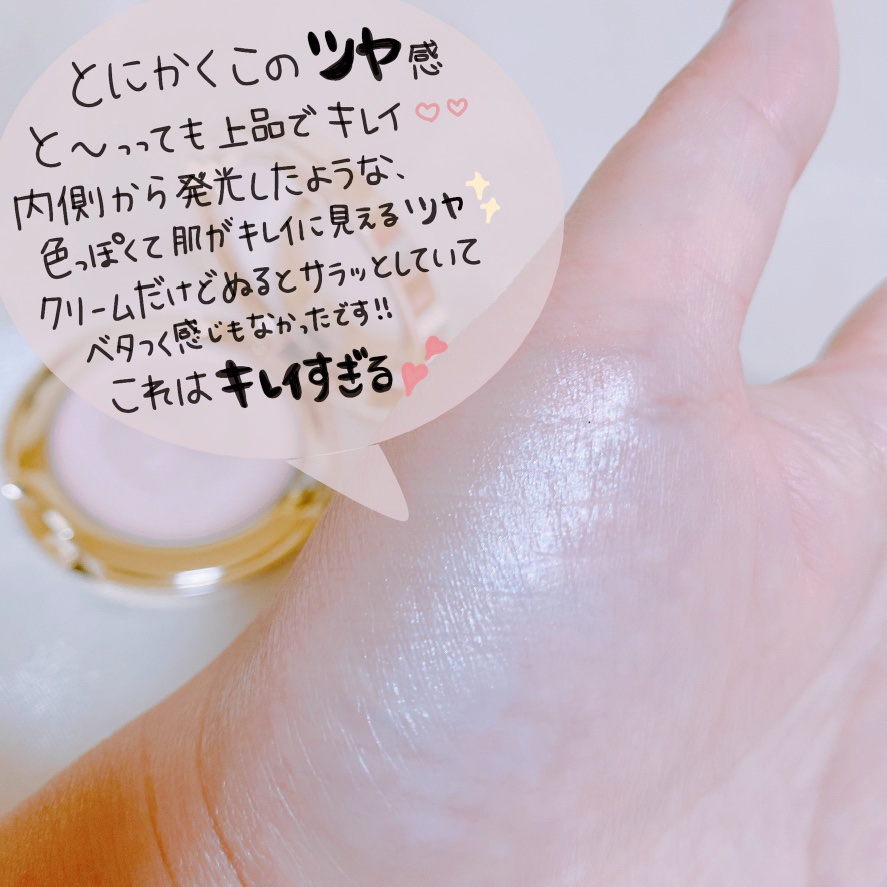 とにかくこのツヤ感
と〜っっても上品でキレイ♡♡
内側から発光したような、
色っぽくて肌がキレイに見えるツヤ✨
クリームだけどぬるとサラッとしていて
ベタつく感じもなかったです!!
これはキレイすぎる💕